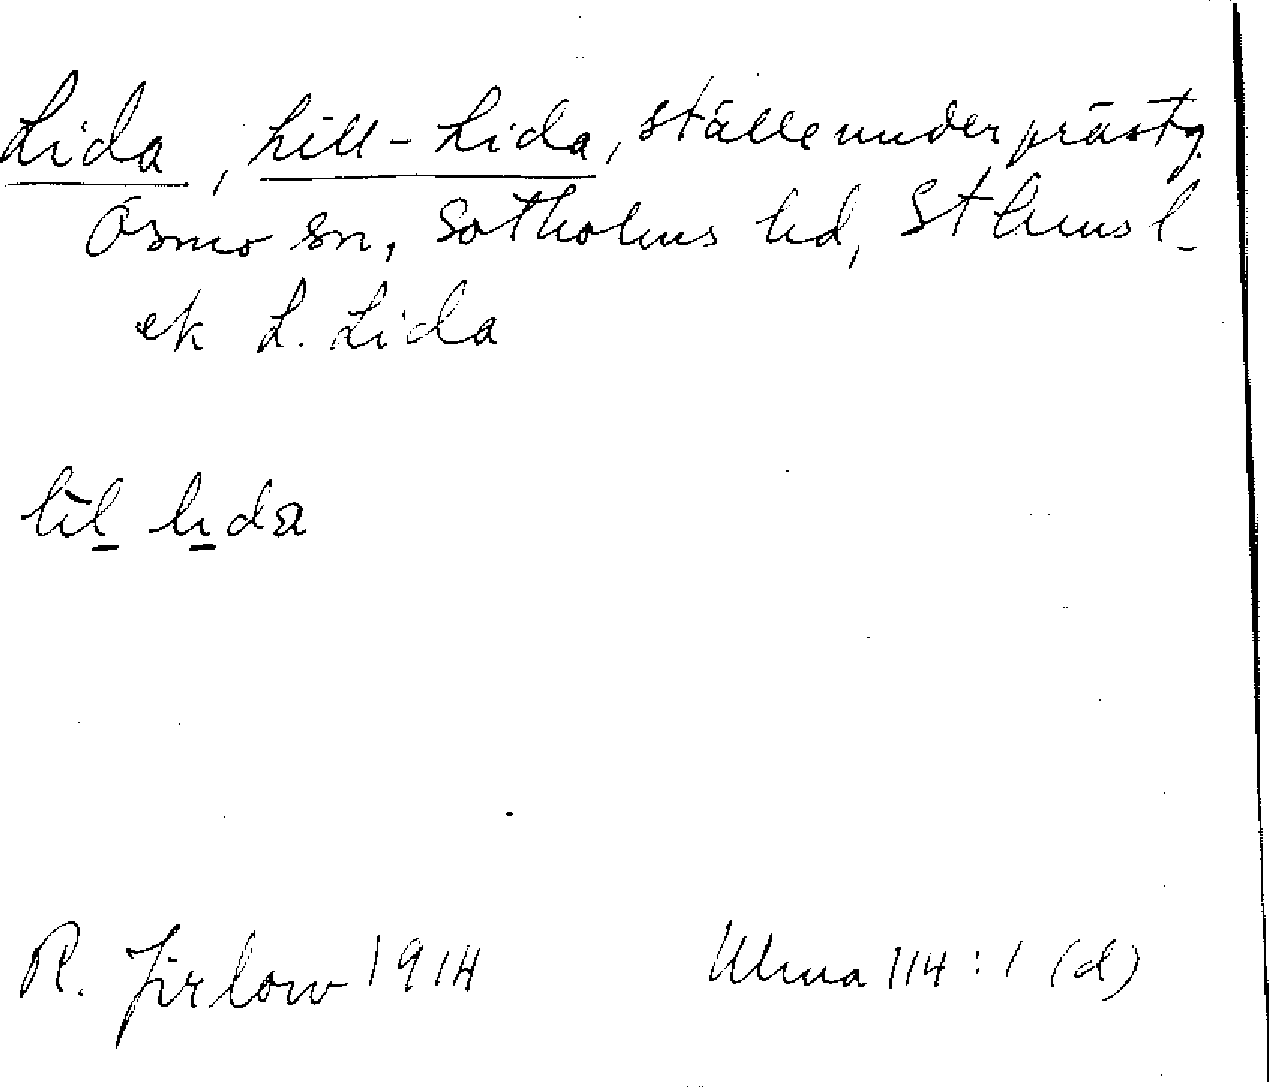 Lida, Lill-Lida, ställe under prästg.
Ösmo sn, Sotholms hd, Sthms l.
ek L. Lida
lil lida
R. Jirlow 1914 Ulma 114:1 (d)